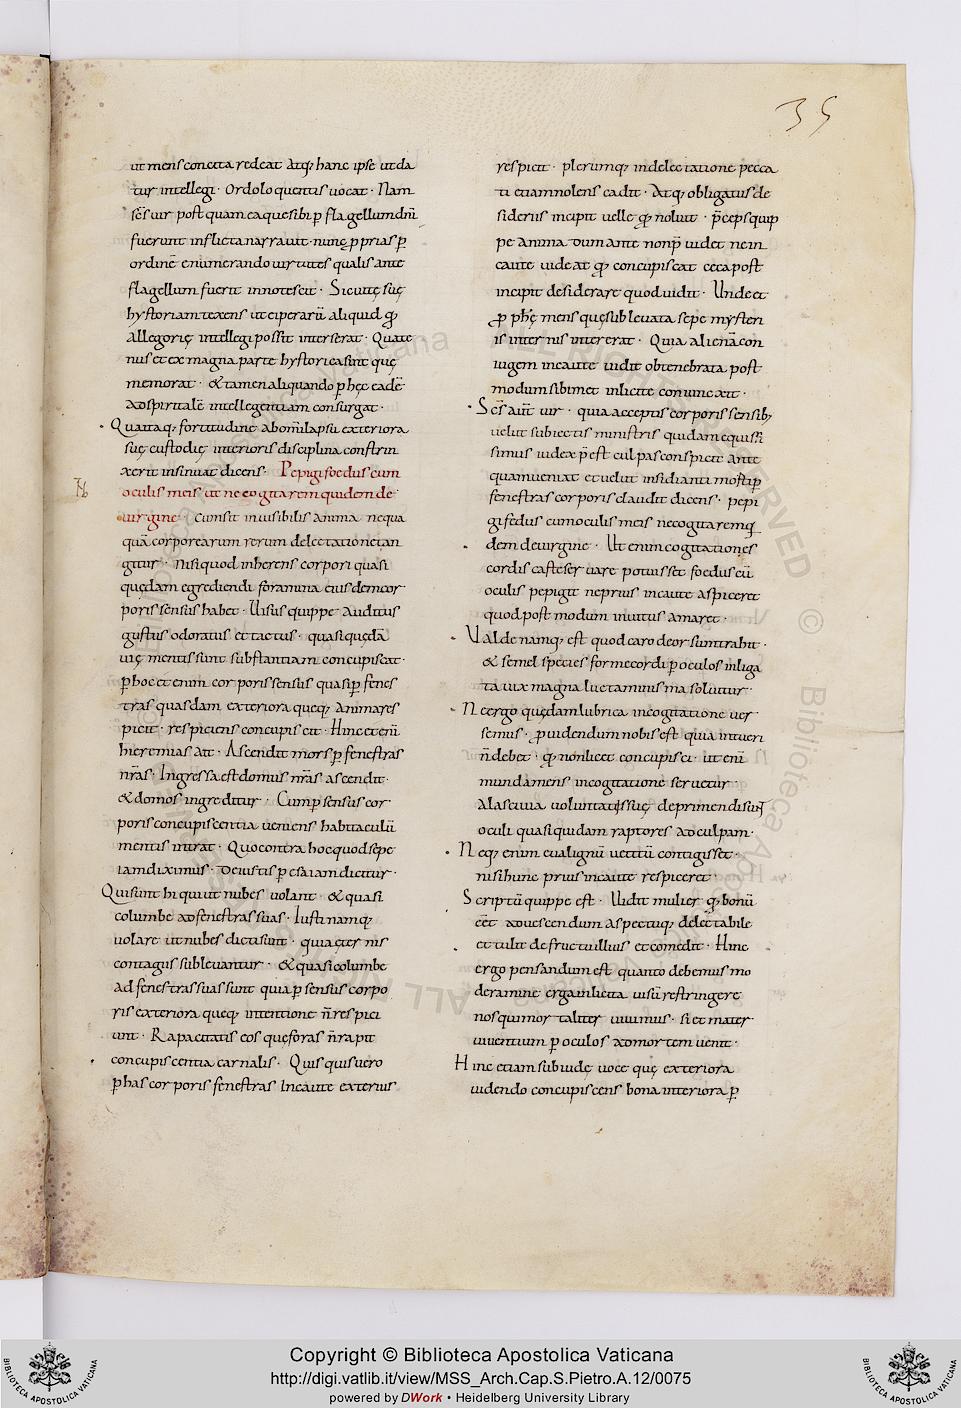 35
ut mens conecta redeat Atq; hanc ipse ut da
tur intellegi · Ordo loquentis uocat · Nam
sc̄s uir post quam ea que sibi ꝑ flagellum dn̄i
fuerunt inflicta narrauit nunc ꝓprias ꝑ
ordinē enumerando uirtutes qualis ante
flagellum fuerit innotescit · Sic uitę suę
hystoriam texens ut ei per arū aliquid qd̄
Allegorię intellegi possit interserat · Quate
nus et ex magna parte hystorica sint quę
memorat · & tamen aliquando ꝑ hęc eadē
Ad spiritalē intellegentiam consurgat ·
Qua itaq; fortitudine ab om̄i lapsu exteriora
suę custodię interioris disciplina constrin
xerit insinuat dicens · Pepigi foedus cum
oculis meis ut ne cogitarem quidem de
uirgine · Cum sit inuisibilis Anima nequa
quā corporearum rerum delectatione tan
gitur · Nisi quod inherens corpori quasi
quędam egrediendi foramina eiusdem cor
poris sensus habet · Uisus quippe Auditus
gustus odoratus et tactus · quasi quędā
uię mentis sunt substantiam concupiscat ·
ꝑ hoc et enim corporis sensus quasi ꝑ fenes
tras quasdam exteriora queq; Anima res
picit · respiciens concupiscit · Hinc et enī
hieremias Ait · Ascendit mors ꝑ fenestras
nr̄as · Ingressa est domus nr̄as ascendit ·
& domos ingreditur · Cum ꝑ sensus cor
poris concupiscentia ueniens habitaculū
mentis intrat · Quo contra hoc quod sepe
iam diximus · De iustis ꝑ esaiam dicitur ·
Qui sunt hi qui ut nubes uolant · & quasi
columbe ad fenestras suas · Iusti namq;
uolare ut nubes dicti sunt · quia a ter nis
contagiis subleuantur · & quasi columbe
Ad fenestras suas sunt quia ꝑ sensus corpo
ris exteriora queq; intentione n̄ respici
unt · Rapacitatis eos que foras n̄ rapit
concupiscentia carnalis · Quis quis uero
ꝑ has corporis fenestras Incaute exterius
respicit · plerumq; in delectatione pecca
ti etiam nolens cadit · Atq; obligatus de
siderius incipit uelle qd̄ noluit · p̄ceps quip
pe Anima dum ante non p̄uidet ne in
caute uideat qd̄ concupiscat ceca post
incipit desiderare quod uidit · Unde et
ꝓphę mens quę subleuata sepe mysteri
is internis intererat · Quia alienā con
iugem incaute uidit obtenebrata post
modum sibimet inlicite coniuncxit ·
Sc̄s aut̄ uir · quia acceptis corporis sensib;
uelut subiectis ministris quidam equissi
simus iudex p̄est culpas conspicit Ante
quam ueniat et uelut insidianti mosti ꝑ
fenestras corporis claudit dicens · pepi
gi fedus cum oculis meis ne cogitarem q
dem de uirgine · Ut enim cogitationes
cordis caste seruare potuisset foedus cū
oculis pepigit ne prius incaute aspiceret
quod post modum inuitus amaret ·
Ualde namq; est quod caro deorsum trahit ·
& semel species forme cordi ꝑ oculos inliga
ta uix magna luctaminis ma soluitur ·
Ne ergo quędam lubrica in cogitatione uer
semus · ꝓuidendum nobis est quia intueri
n̄ debet · qd̄ non licet concupisci · ut enī
munda mens in cogitatione seruetur
A lasciuia uoluntatis suę deprimendi sunt
oculi quasi quidam raptores ad culpam ·
Neq; enim eua lignū uetitū contigisset ·
nisi hunc prius incaute respiceret ·
Scriptū quippe est · Uidit mulier qd̄ bonū
eēt ad uescendum aspectuq; delectabile
et tulit de fructu illius et comedit · Hinc
ergo pensandum est quanto debemus mo
deramine erga inlicita uisū restringere
nos qui mortaliter uiuimus · si et mater
uiuentium ꝑ oculos ad mortem uenit ·
Hinc etiam sub iudę uoce quę exteriora
uidendo concupiscens bona interiora ꝑ
Copyright © Biblioteca Apostolica Vaticana
http://digi.vatlib.it/view/MSS_Arch.Cap.S.Pietro.A.12/0075
powered by DWork • Heidelberg University Library